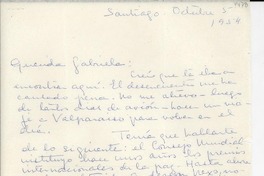 Santiago Octubre 5-
1954
Querida Gabriela:
Creía que te iba a
encontrar aquí. El desencuentro me ha
causado pena. No me atrevo - luego
de tantos días de avión - hacer un via-
je a Valparaíso para volver en el
día.
Tenía que hablarte
de lo siguiente: el Consejo Mundial
instituyó hace unos años los premios
internacionales de la paz. Hasta ahora